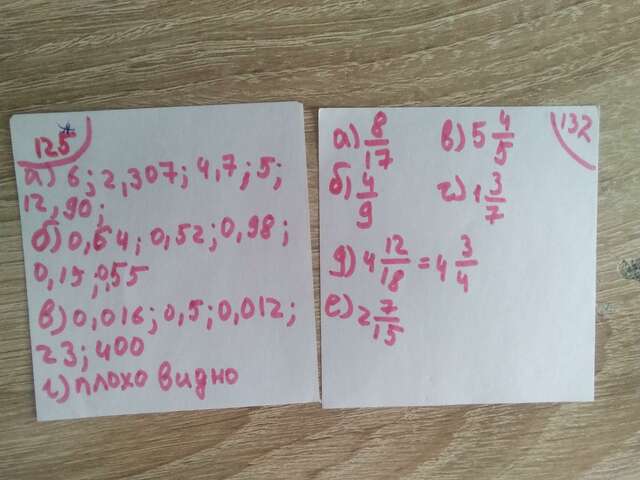 125
а) 6; 2,307; 4,7; 5;
12,90;
б) 0,64; 0,52; 0,98;
0,15; 0,55
в) 0,016; 0,5; 0,012;
23; 400
г) плохо видно
132
а) 8/17
в) 5 4/5
б) 4/9
г) 1 3/7
д) 4 12/18 = 4 3/4
е) 2 7/15